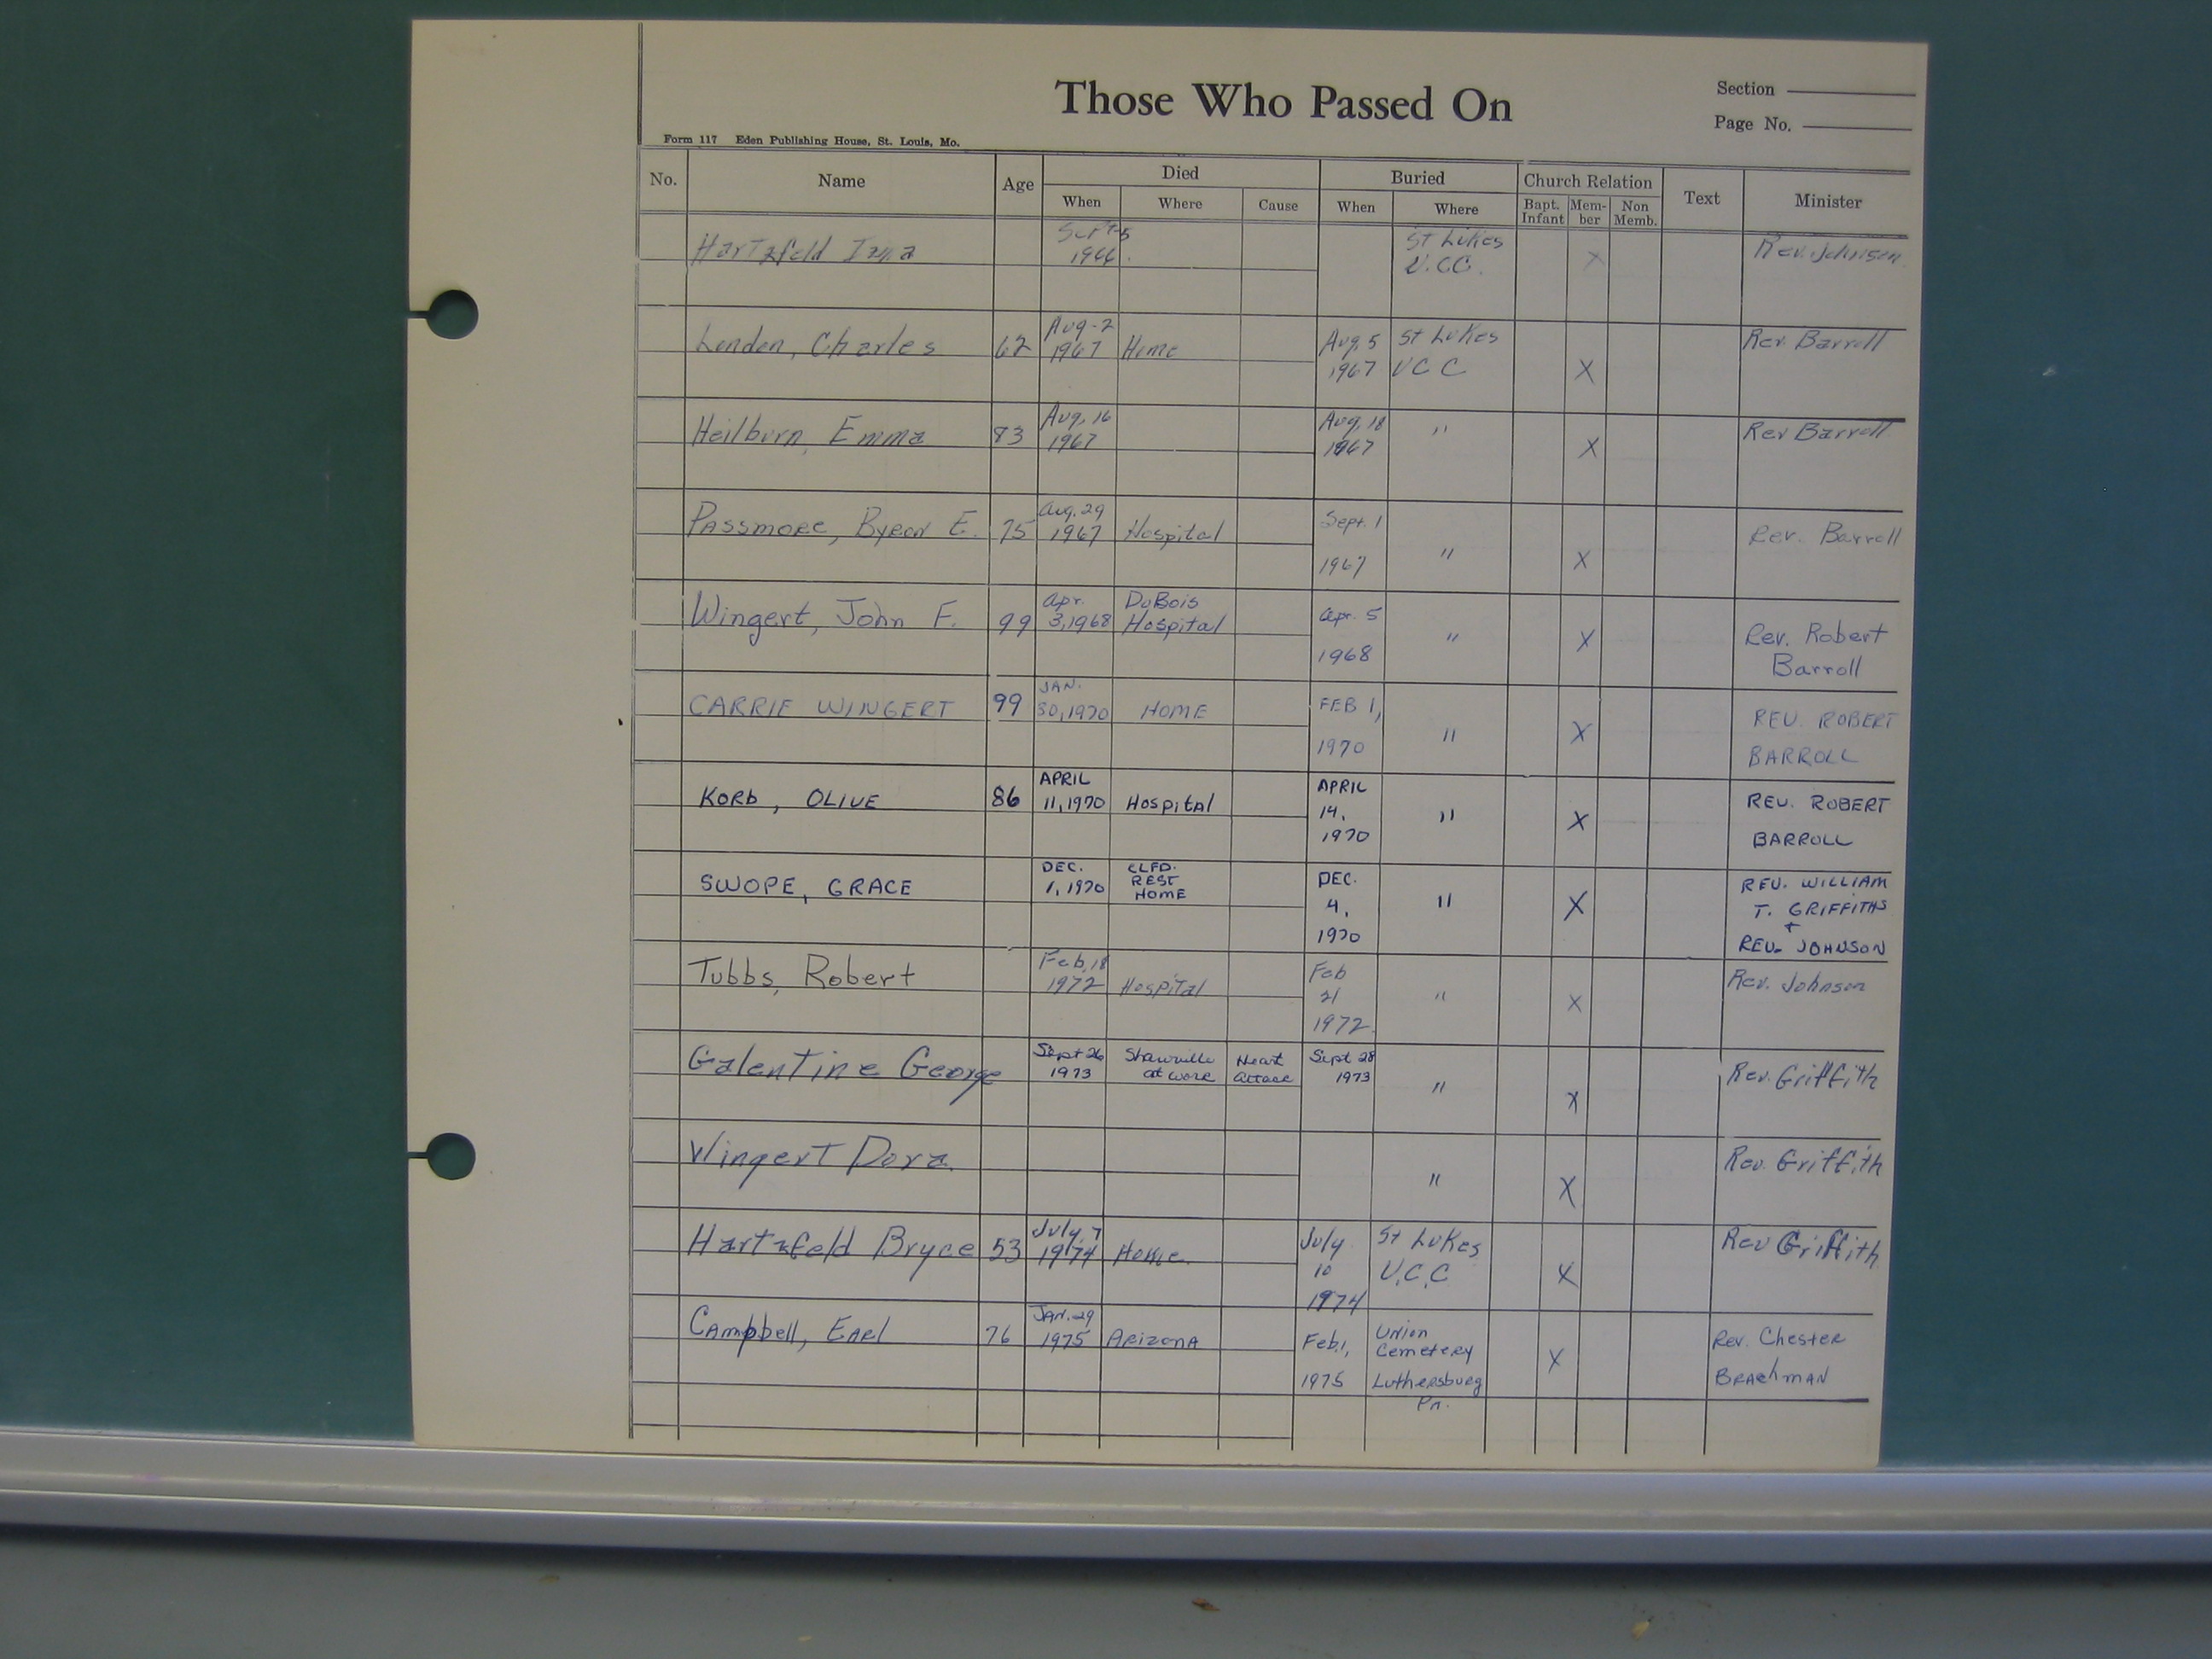 Those Who Passed On
Section
Page No.
Form 117 Eden Publishing House, St. Louis, Mo.
No. Name Age Died Buried Church Relation Text Minister
When Where Cause When Where Bapt. Infant Mem-ber Non Memb.
Hartzfeld Sept 5 1966 St Lukes U.CC. X Rev. Johnson
London, Charles 62 Aug-2 1967 Home Aug, 5 1967 St Lukes UCC X Rev. Barroll
Heilburn, Emma 83 Aug, 16 1967 Aug, 18 1967 " X Rev Barroll
Passmore, Byron E. 75 Aug. 29 1967 Hospital Sept. 1 1967 " X Rev. Barroll
Wingert, John F. 99 Apr. 3, 1968 DuBois Hospital Apr. 5 1968 " X Rev. Robert Barroll
CARRIE WINGERT 99 JAN. 30, 1970 HOME FEB 1, 1970 " X REV. ROBERT BARROLL
KORb, OLIVE 86 APRIL 11, 1970 HospitAl APRIL 14, 1970 " X REV. ROBERT BARROLL
SWOPE, GRACE DEC. 1, 1970 CLFD. REST HOME DEC. 4, 1970 " X REV. WILLIAM T. GRIFFITHS + REV. JOHNSON
Tubbs, Robert Feb, 18 1972 Hospital Feb 21 1972. " X Rev. Johnson
Galentine George Sept 26 1973 Shawville at work Heart attack Sept 28 1973 " X Rev. Griffith
Wingert Dora " X Rev. Griffith
Hartzfeld Bryce 53 July, 7 1974 Home. July 10 1974 St Lukes U.C.C X Rev Griffith
Campbell, Earl 76 JAN. 29 1975 ArizonA Feb. 1, 1975 Union Cemetery Luthersburg Pa. X Rev. Chester BrachmAN